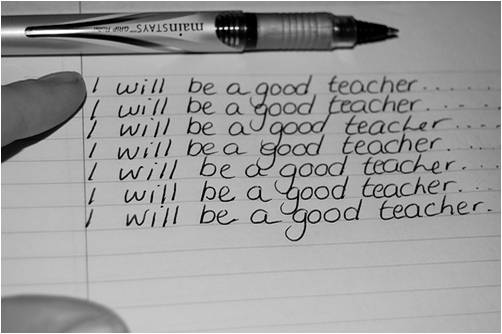 mainSTAYS
I will be a good teacher......
I will be a good teacher.....
I will be a good teacher....
I will be a good teacher....
I will be a good teacher....
I will be a good teacher...
I will be a good teacher.